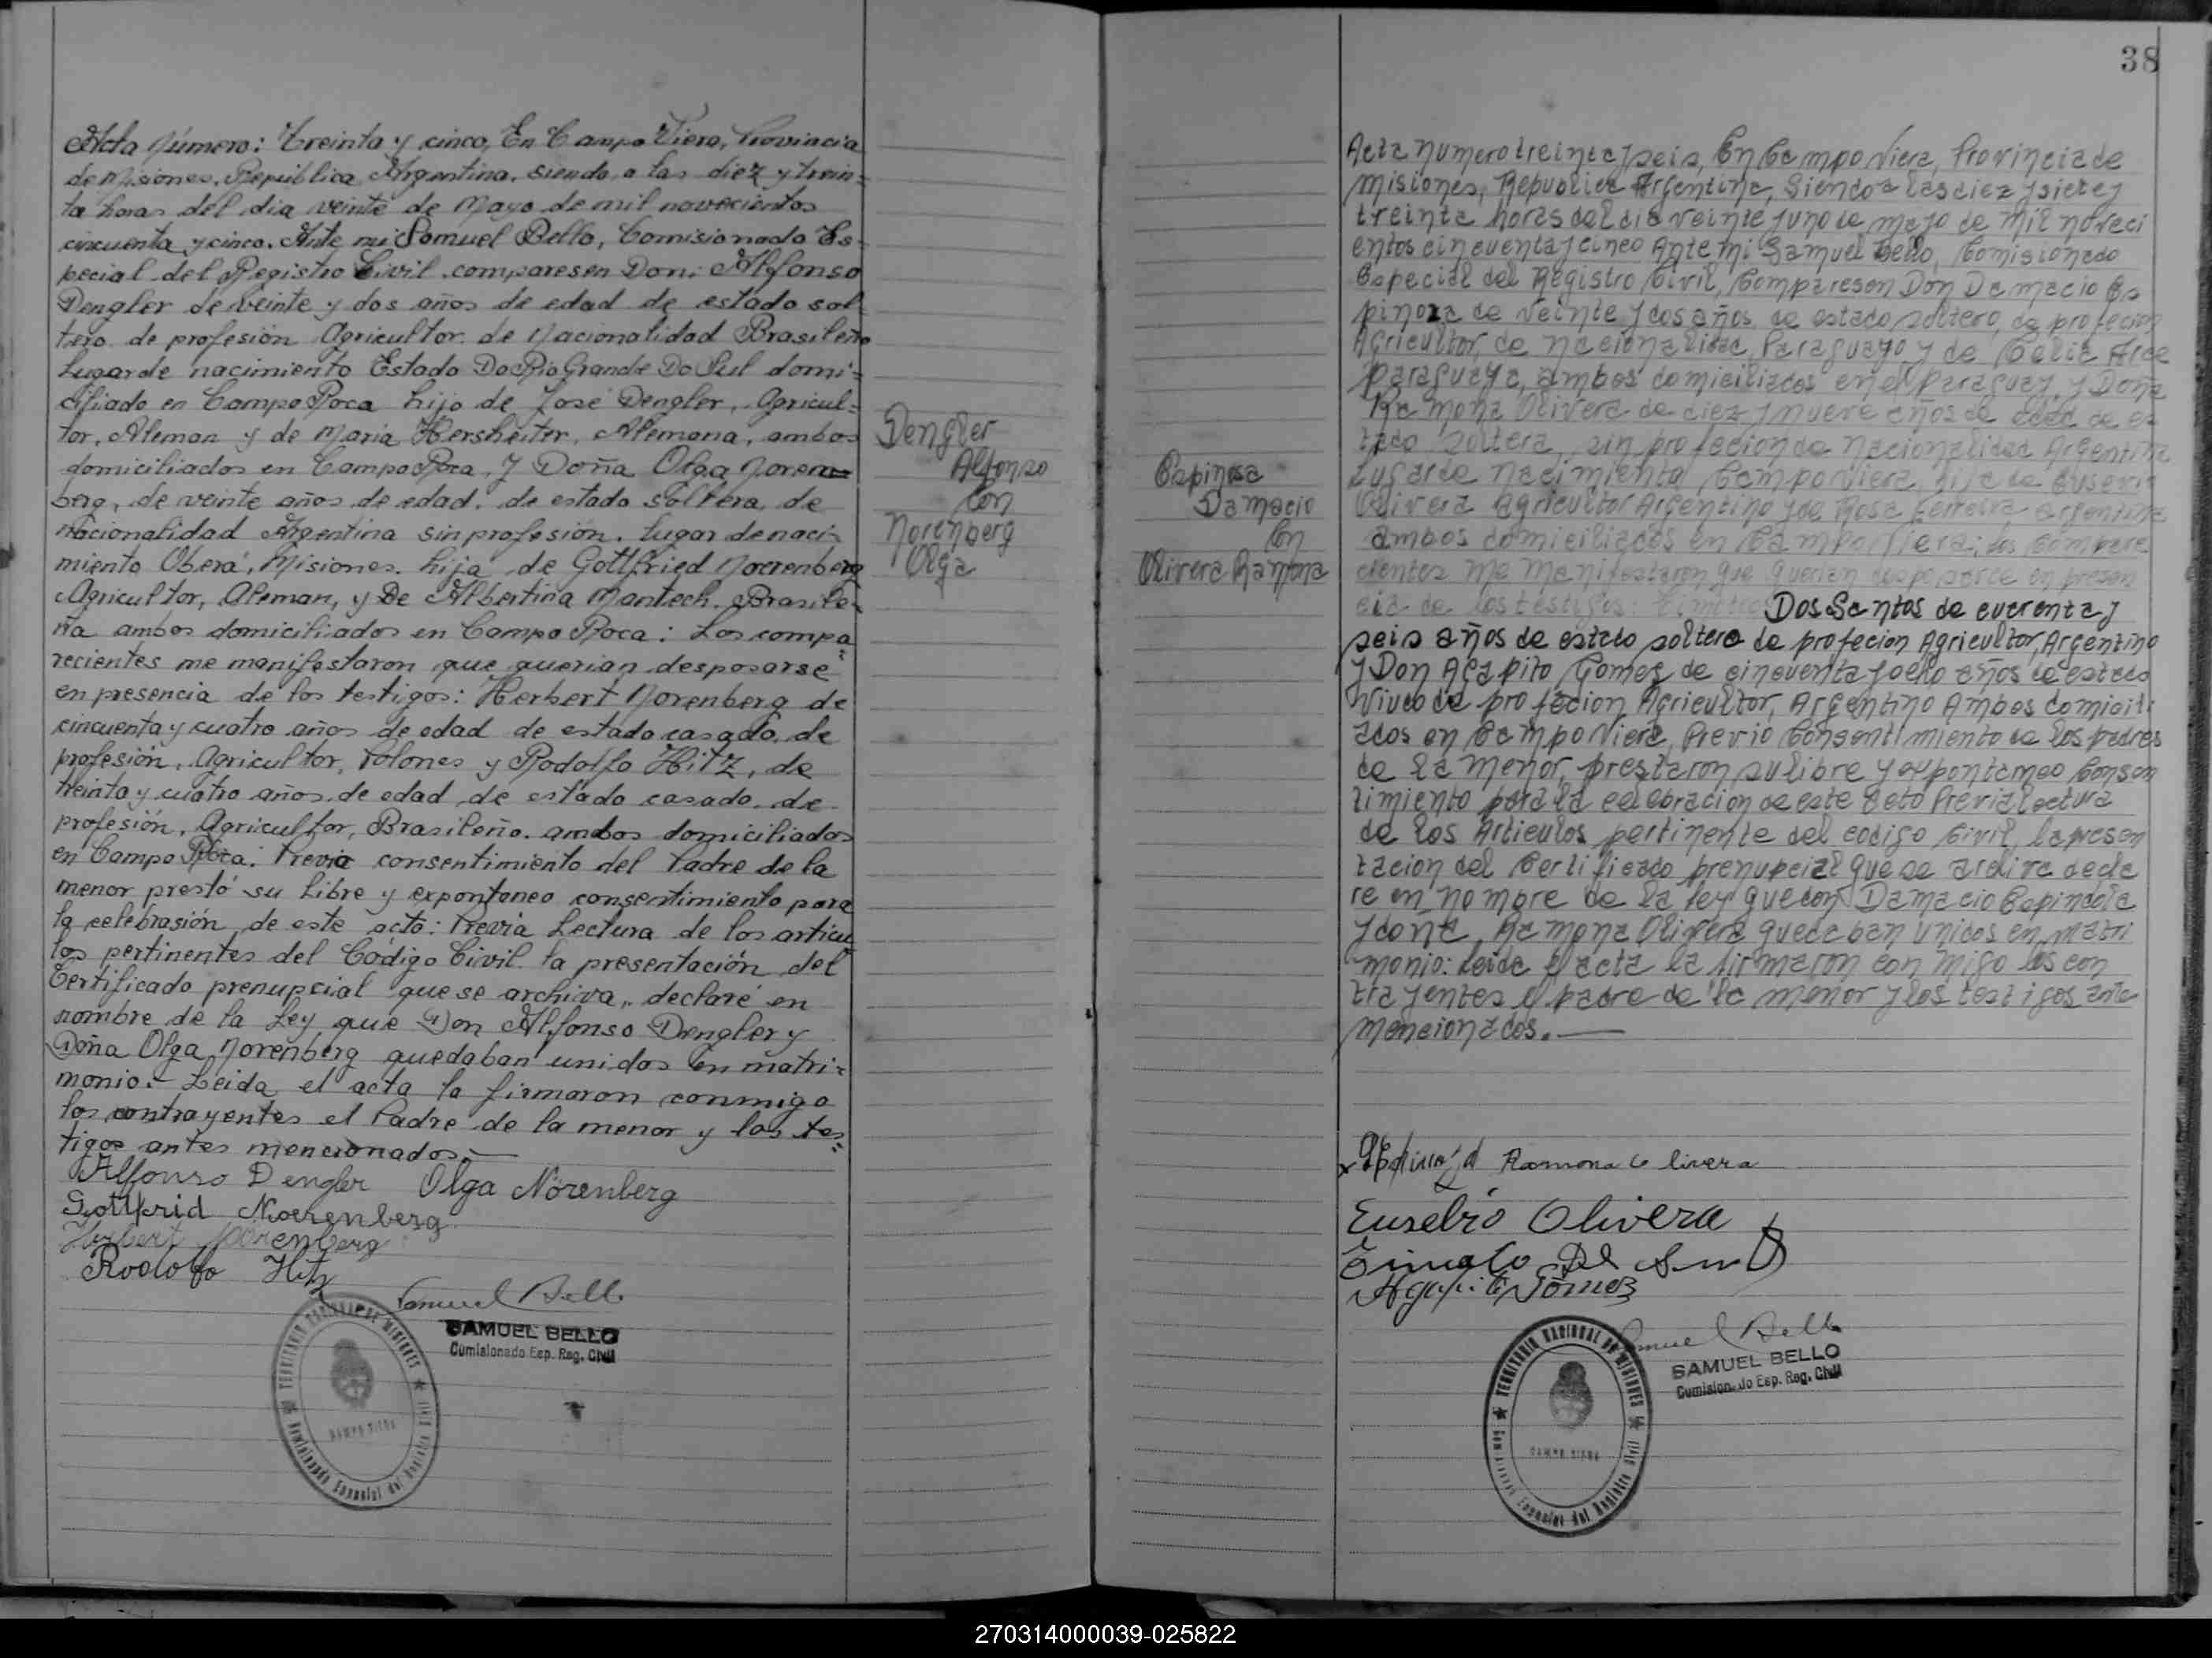 Acta Número: Treinta y cinco, En Campo Viera, Provincia
de Misiones, República Argentina, siendo a las diez y trein=
ta horas del dia veinte de Mayo de mil novecientos
cincuenta y cinco. Ante mi Samuel Bello, Comisionado Es-
pecial del Registro Civil comparesen Don: Alfonso
Dengler de veinte y dos años de edad de estado sol-
tero de profesión Agricultor de Nacionalidad Brasileño
Lugar de nacimiento Estado Do Rio Grande Do Sul domi=
ciliado en Campo Roca hijo de José Dengler, Agricul=
tor, Aleman y de Maria Hersheiter, Alemana, ambos
domiciliados en Campo Roca, Y Doña Olga Noren=
berg, de veinte años de edad, de estado soltera, de
Nacionalidad Argentina sin profesión. Lugar de naci=
miento Oberá, Misiones. hija de Gottfried Noerenberg
Agricultor, Aleman, y De Albertina Mantech, Brasile-
ña ambos domiciliados en Campo Roca: Los compa=
recientes me manifestaron que querian desposarse
en presencia de los testigos: Herbert Norenberg de
cincuenta y cuatro años de edad de estado casado, de
profesión, Agricultor, Polones y Rodolfo Hitz, de
treinta y cuatro años de edad, de estado casado, de
profesión, Agricultor, Brasileño, ambos domiciliados
en Campo Roca: Previo consentimiento del Padre de la
menor prestó su Libre y expontaneo consentimiento para
la celebrasión de este acto: Previa Lectura de los articu
los pertinentes del Código Civil la presentación del
Certificado prenupcial que se archiva, declaré en
nombre de la Ley que Don Alfonso Dengler y
Doña Olga Norenberg quedaban unidos en matri=
monio.- Leida el acta la firmaron conmigo
los contrayentes el Padre de la menor y los tes=
tigos antes mencionados.-
Alfonso Dengler Olga Nörenberg
Gottfrid Noerenberg
Herbert Nörenberg
Rodolfo Hitz
Samuel Bello
SAMUEL BELLO
Comisionado Esp. Reg. Civil
TERRITORIO NACIONAL DE MISIONES
CAMPO VIERA
Comisionado Especial del Registro Civil
Dengler
Alfonso
Con
Norenberg
Olga
38
Espinosa
Damacio
Con
Olivera Ramona
Acta numero treinta y seis, En Campo Viera, Provincia de
Misiones, Republica Argentina, Siendo a las diez y siete y
treinta horas del dia veinte y uno de mayo de mil noveci
entos cincuenta y cinco Ante mi Samuel Bello, Comisionado
Especial del Registro Civil, Comparesen Don Damacio Es
pinoza de veinte y dos años de estado soltero, de profecion
Agricultor, de nacionalidad Paraguayo y de Celia Arce
Paraguaya, ambos domiciliados en el Paraguay, y Doña
Ramona Olivera de diez y nueve años de edad de es
tado soltera, sin profecion de nacionalidad Argentina
Lugar de nacimiento Campo Viera, hija de Eusevio
Olivera Agricultor Argentino y de Rosa Ferreira argentina
ambos domiciliados en Campo Viera; los Compare
cientes me manifestaron que querian desposarse en presen
cia de los testigos: Dos Santos de cuarenta y
seis años de estado soltero de profecion Agricultor, Argentino
y Don Agapito Gomez de cincuenta y ocho años de estado
Viudo de profecion Agricultor, Argentino Ambos domicili
ados en Campo Viera, Previo Consentimiento de los padres
de la menor, prestaron su libre y expontaneo Consen
timiento para la celebracion de este acto Previa lectura
de los Articulos pertinente del codigo Civil, la presen
tacion del Certificado prenupcial que se archiva decla
re en nombre de la Ley que con Damacio Espinoza
y dona Ramona Olivera quedaban unidos en matri
monio: Leida el acta la firmaron con migo los con
trayentes el padre de la menor y los testigos ante
mencionados.-
Ramona Olivera
Eusebio Olivera
Agapito Gómez
Samuel Bello
SAMUEL BELLO
Comisionado Esp. Reg. Civil
TERRITORIO NACIONAL DE MISIONES
CAMPO VIERA
Comisionado Especial del Registro Civil
270314000039-025822